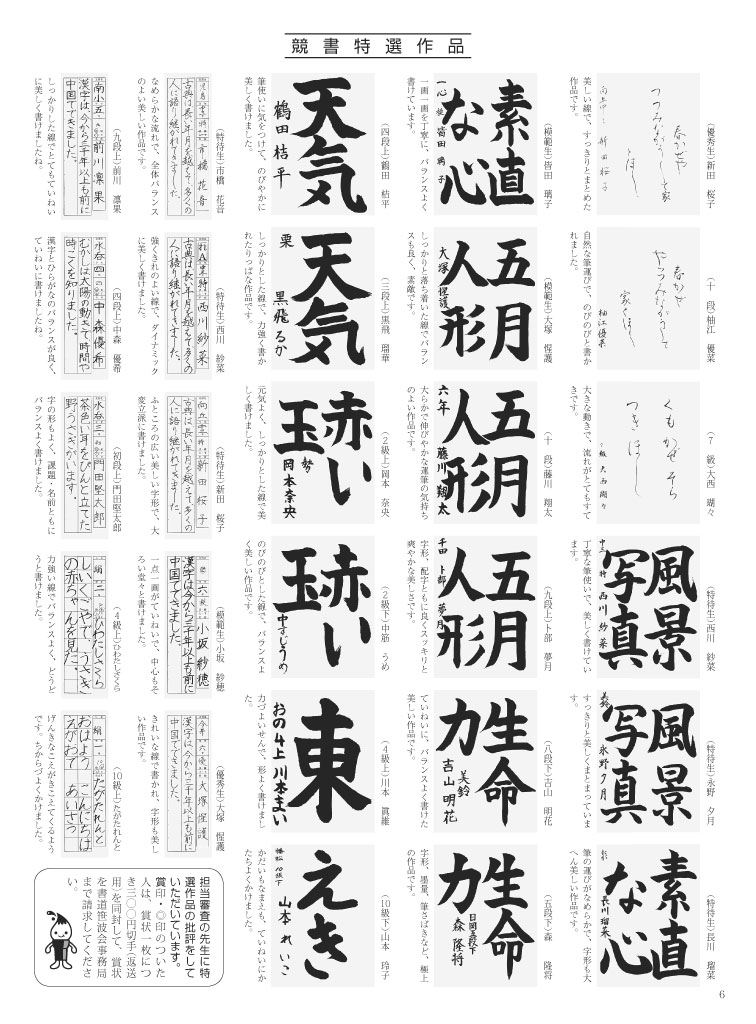 競書特選作品
（優秀生）新田　桜子
春かぜや
つつみながうして家
とほし
南上中一　新田桜子
美しい線で、すっきりとまとめた
作品です。
（十　段）柚江　優菜
春かぜ
家とほし
柚江優菜
自然な筆運びで、のびのびと書か
れました。
（７　級）大西　瑚々
くもかぜそら
つきほし
大きな動きで、流れがとてもすて
きです。
（特待生）西川　紗菜
風景
写真
中三　特　西川紗菜
丁寧な筆使いで、美しく書けてい
ます。
（特待生）永野　夕月
風景
写真
美鈴　永野夕月
すっきりと美しくまとまっていま
す。
（特待生）長川　瑠菜
素直
な心
長川瑠菜
筆の運びがなめらかで、字形も大
へん美しい作品です。
（模範生）皆田　璃子
素直
な心
皆田璃子
一画一画を丁寧に、バランスよく
書けています。
（模範生）大塚　惺護
五月
人形
大塚惺護
しっかりと落ち着いた線でバラン
スも良く、素敵です。
（十　段）藤川　翔太
五月
人形
六年　藤川翔太
大らかで伸びやかな運筆の気持ち
のよい作品です。
（九段上）卜部　夢月
五月
人形
千田　卜部夢月
字形、配字ともに良くスッキリと
爽やかな美しさです。
（八段下）吉山　明花
生命
力
美鈴　吉山明花
ていねいに、バランスよく書けた
美しい作品です。
（五段下）森　隆将
生命
力
日岡五段下　森隆将
字形、墨量、筆さばきなど、極上
の作品です。
（四段上）鶴田　桔平
天気
鶴田桔平
筆使いに気をつけて、のびやかに
美しく書けました。
（三段上）黒飛　瑠華
天気
栗　黒飛るか
しっかりとした線で、力強く書か
れたりっぱな作品です。
（２級上）岡本　奈央
赤い
玉
勢　岡本奈央
元気よく、しっかりとした線で美
しく書けました。
（２級下）中筋　うめ
赤い
玉
中すじうめ
のびのびとした線で、バランスよ
く美しい作品です。
（４級上）川本　真維
東
おの４上　川本まい
力づよいせんで、形よく書けまし
た。
（10級下）山本　玲子
えき
幡松10級下　山本れいこ
かだいもなまえも、ていねいにか
たちよくかけました。
（特待生）市橋　花音
市橋花音
古典は長い年月を越えて多くの
人に語り継がれてきました。
なめらかな流れで、全体バランス
のよい美しい作品です。
（特待生）西川　紗菜
西川紗菜
古典は長い年月を越えて多くの
人に語り継がれてきました。
強くきれのよい線で、ダイナミック
に美しく書けました。
（特待生）新田　桜子
新田桜子
古典は長い年月を越えて多くの
人に語り継がれてきました。
ふところの広い美しい字形で、大
変立派に書けました。
（模範生）小坂　紗穂
六　小坂紗穂
漢字は今から三千年以上も前に
中国でできました。
一点一画がていねいで、中心もそ
ろい堂々と書けました。
（優秀生）大塚　惺護
今井　六　優　大塚惺護
漢字は今から三千年以上も前に
中国でできました。
きれいな線で書かれ、字形も美し
い作品です。
（九段上）前川　凛果
南小　五　前川凛果
漢字は、今から三千年以上も前に
中国でできました。
しっかりした線でとてもていねい
に美しく書けましたね。
（四段上）中森　優希
水呑　四　中森優希
むかしは太陽の動きで時間や
時こくを知りました。
漢字とひらがなのバランスが良く、
ていねいに書けましたね。
（初段上）門田堅太郎
水呑　三　門田堅太郎
茶色い耳をぴんと立てた
野うさぎがいます。
字の形もよく、課題・名前ともに
バランスよく書けました。
（４級上）ひわたしさくら
絹　二　ひわたしさくら
しいくごやで、うさぎ
の赤ちゃんを見た。
力強い線でバランスよく、どうど
うと書けました。
（10級上）たがたれんと
絹　一　たがたれんと
おはよう　こんにちは
えがおで　あいさつ
げんきなことがきこえてくるよう
です。ちからづよくかけました。
担当審査の先生に特
選作品の批評をして
いただいています。
賞印・◎印のついた
人は、賞状一枚につ
き三〇〇円切手（返送
用）を同封して、賞状
を書道笹波会事務局
まで請求してくださ
い。
6